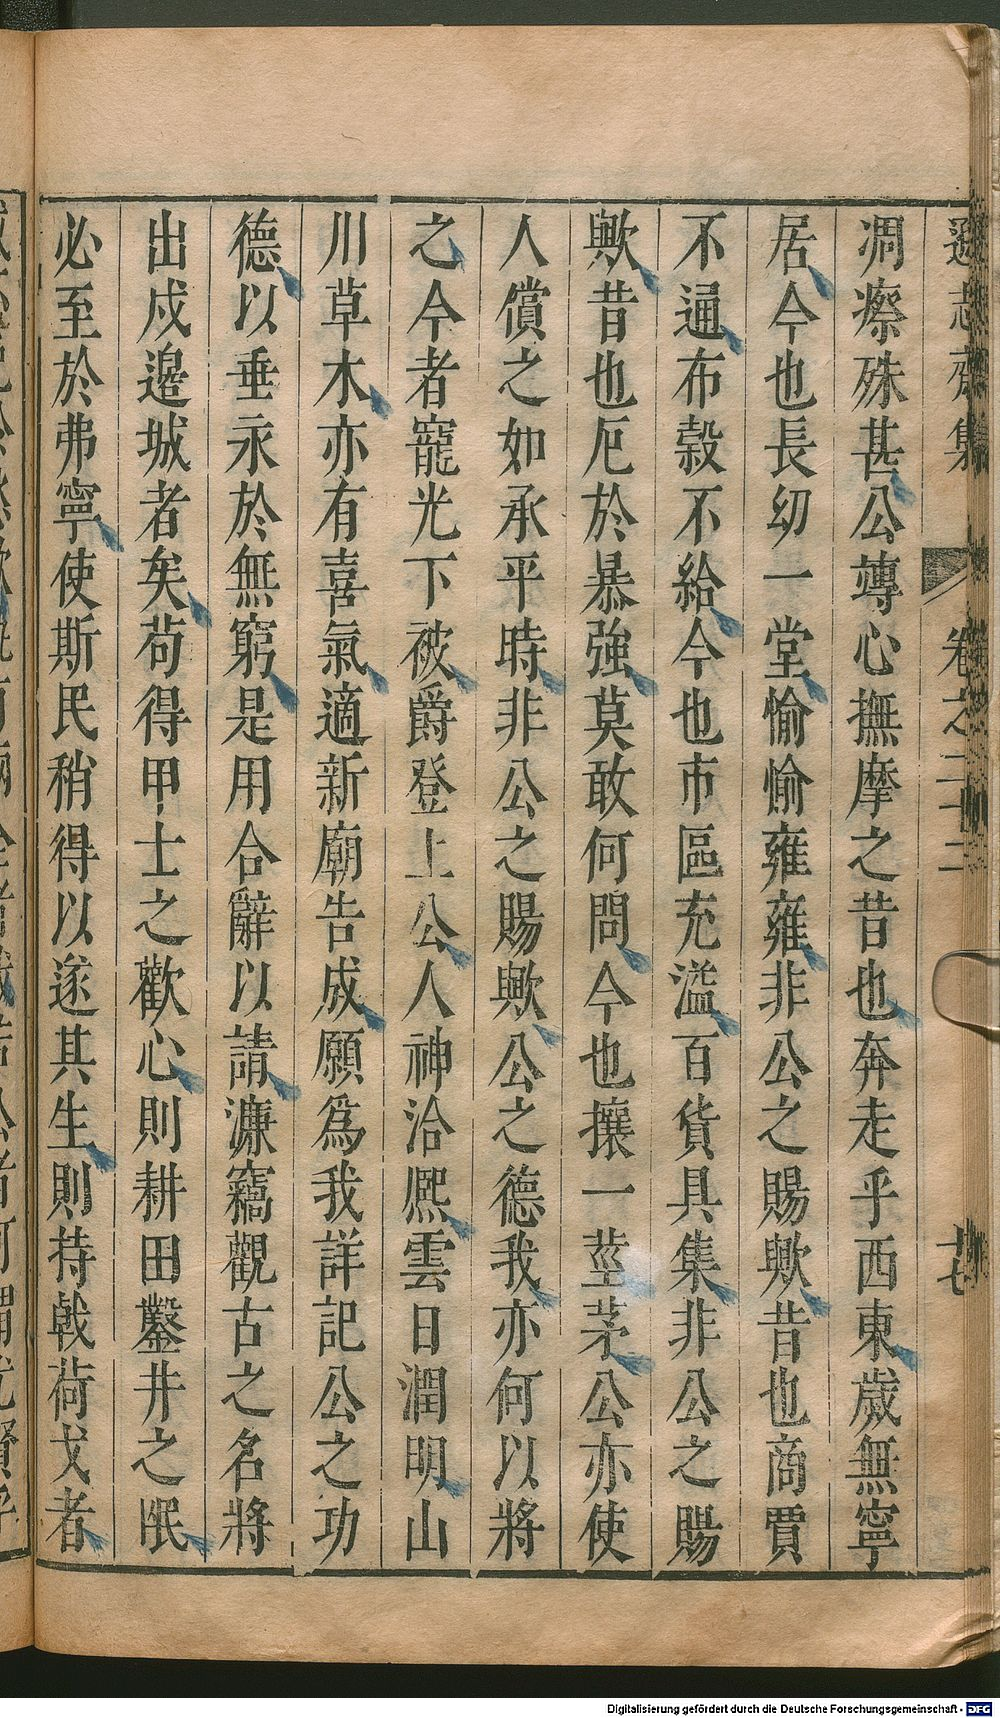 遜志齋集 卷之二十二 十七
凋瘵殊甚公竱心撫摩之昔也奔走乎西東歲無寧
居今也長幼一堂愉愉雍雍非公之賜歟昔也商賈
不通布縠不給今也市區充溢百貨具集非公之賜
歟昔也厄於暴強莫敢何問今也攘一莖茅公亦使
人償之如承平時非公之賜歟公之德我亦何以將
之今者寵光下被爵登上公人神洽熈雲日潤明山
川草木亦有喜氣適新廟告成願爲我詳記公之功
德以垂永於無窮是用合辭以請濂竊觀古之名將
出戍邊城者矣苟得甲士之歡心則耕田鑿井之眠
必至於弗寧使斯民稍得以遂其生則持戟荷戈者
Digitalisierung gefördert durch die Deutsche Forschungsgemeinschaft - DFG